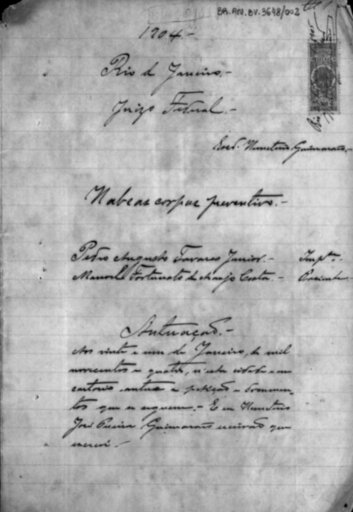 BR.AN.BV.3648/002
1904 -
Rio de Janeiro. -
Juizo Federal. -
Escr. Hemeterio Guimarães. -
Habeas corpus preventivo. -
Pedro Augusto Tavares Junior. - Impte. -
Manoel Fortunato de Araujo Costa. - Paciente. -
Autuação. -
Aos vinte e um de Janeiro, de mil
novecentos e quatro, n'esta cidade e em
cartorio autuo a petição e documen-
tos que se seguem. - E eu Hemeterio
José Pereira Guimarães escrivão que
escrevi. -